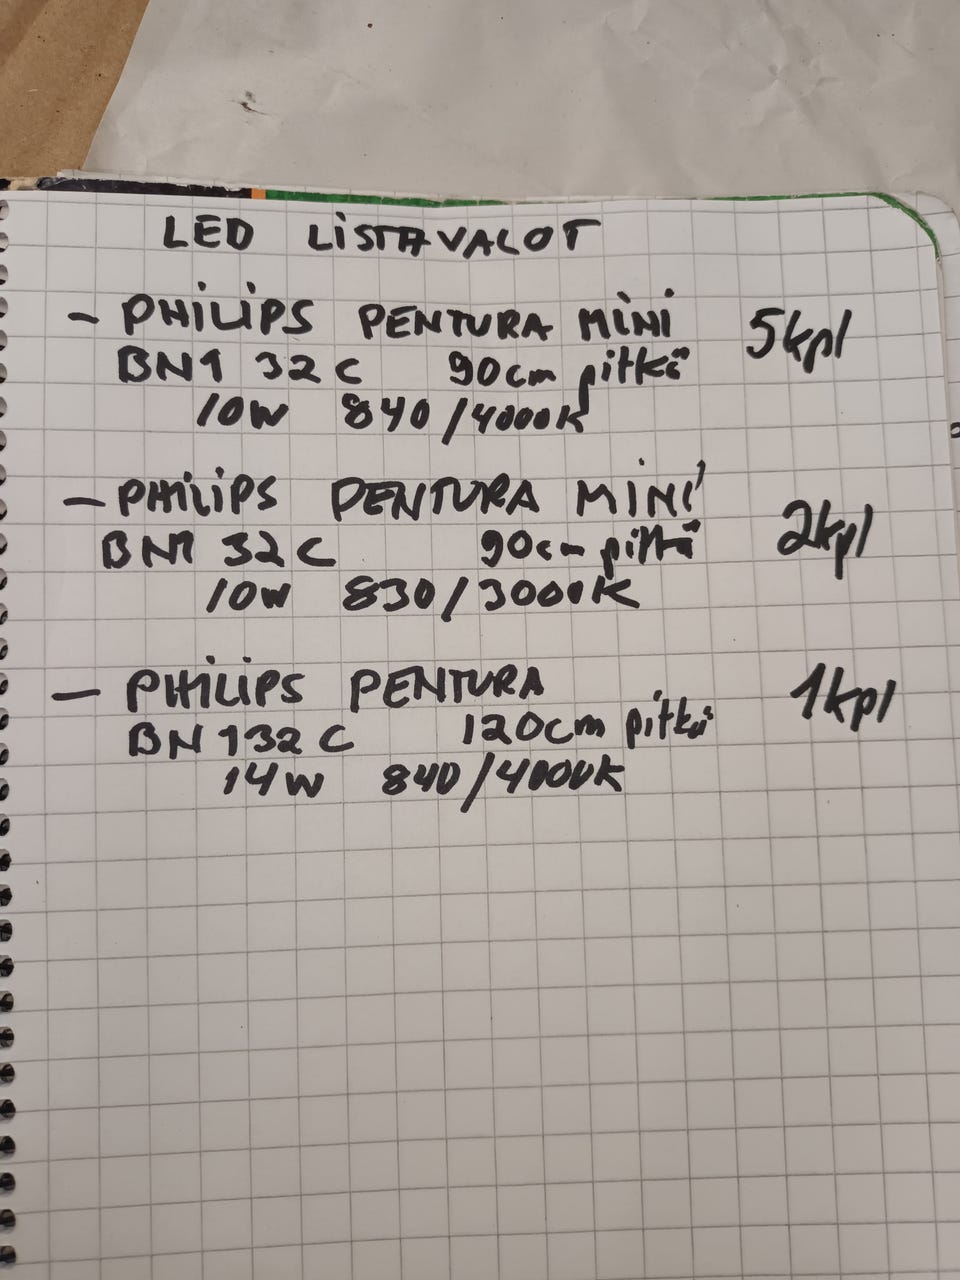 LED LISTAVALOT
- PHILIPS PENTURA MINI 5kpl
BN1 32 C 90cm pitkä
10W 840/4000K
- PHILIPS PENTURA MINI 2kpl
BN1 32 C 90cm pitkä
10W 830/3000K
- PHILIPS PENTURA 1kpl
BN 132 C 120cm pitkä
14W 840/4000K